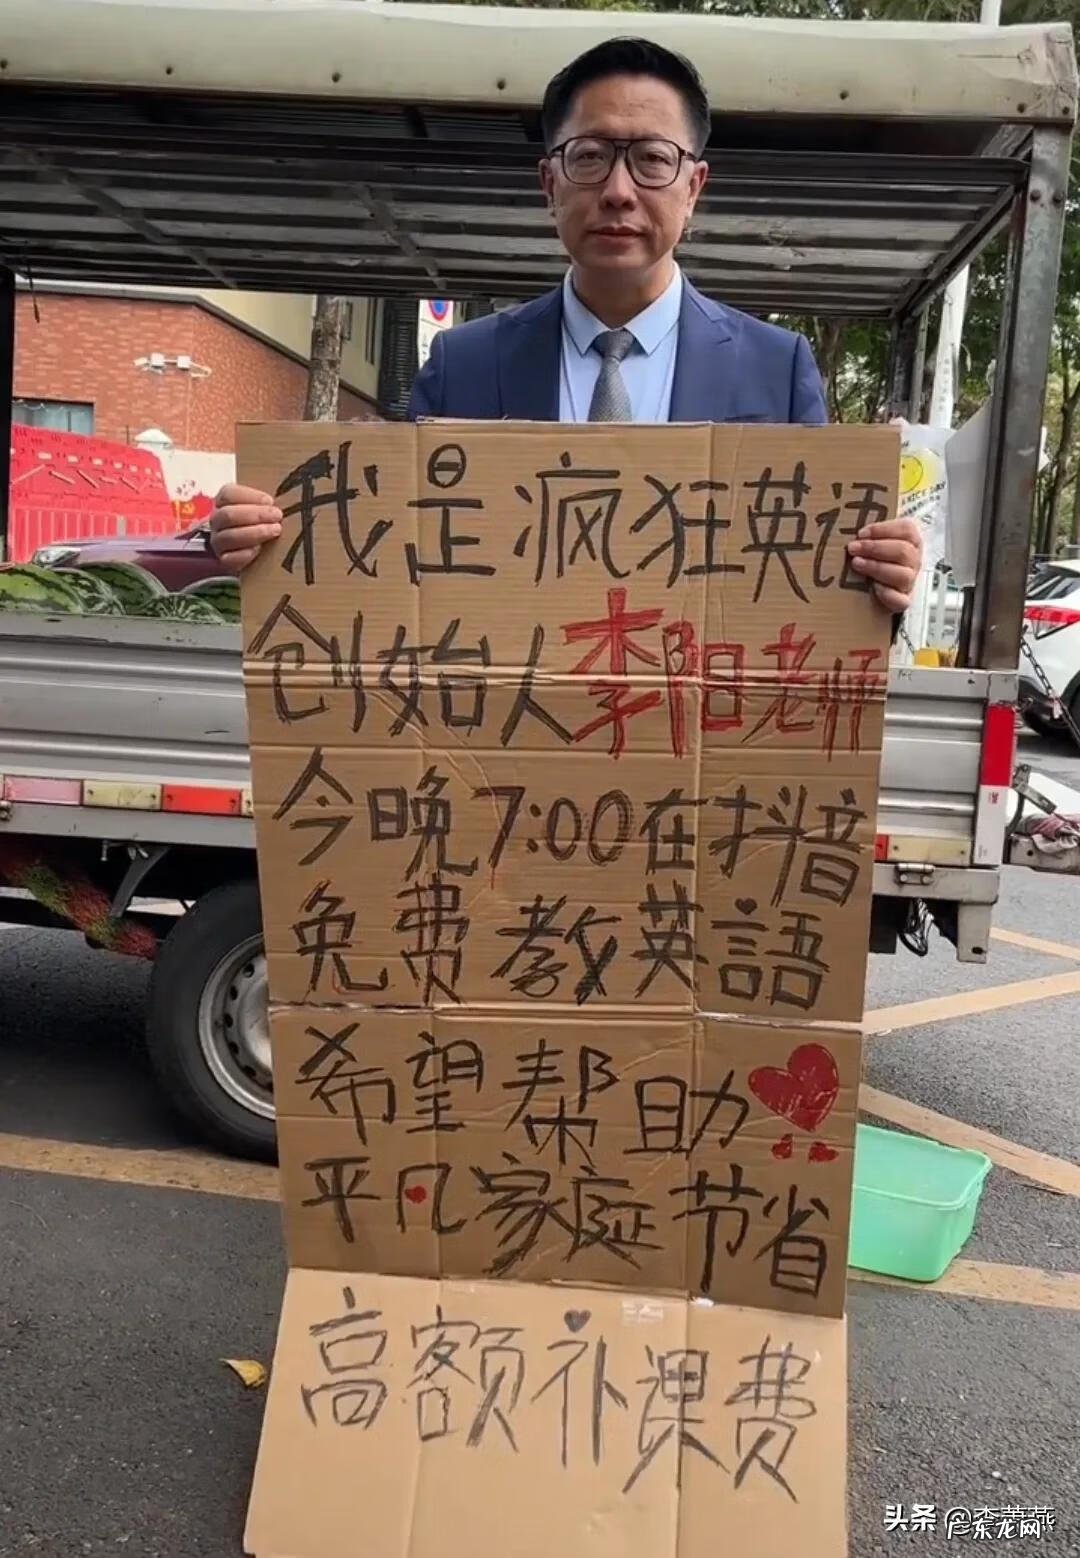 我是疯狂英语
创始人李阳老师
今晚7:00在抖音
免费教英語
希望帮助
平凡家庭节省
高额补课费
NICE DAY
头条
广东龙网